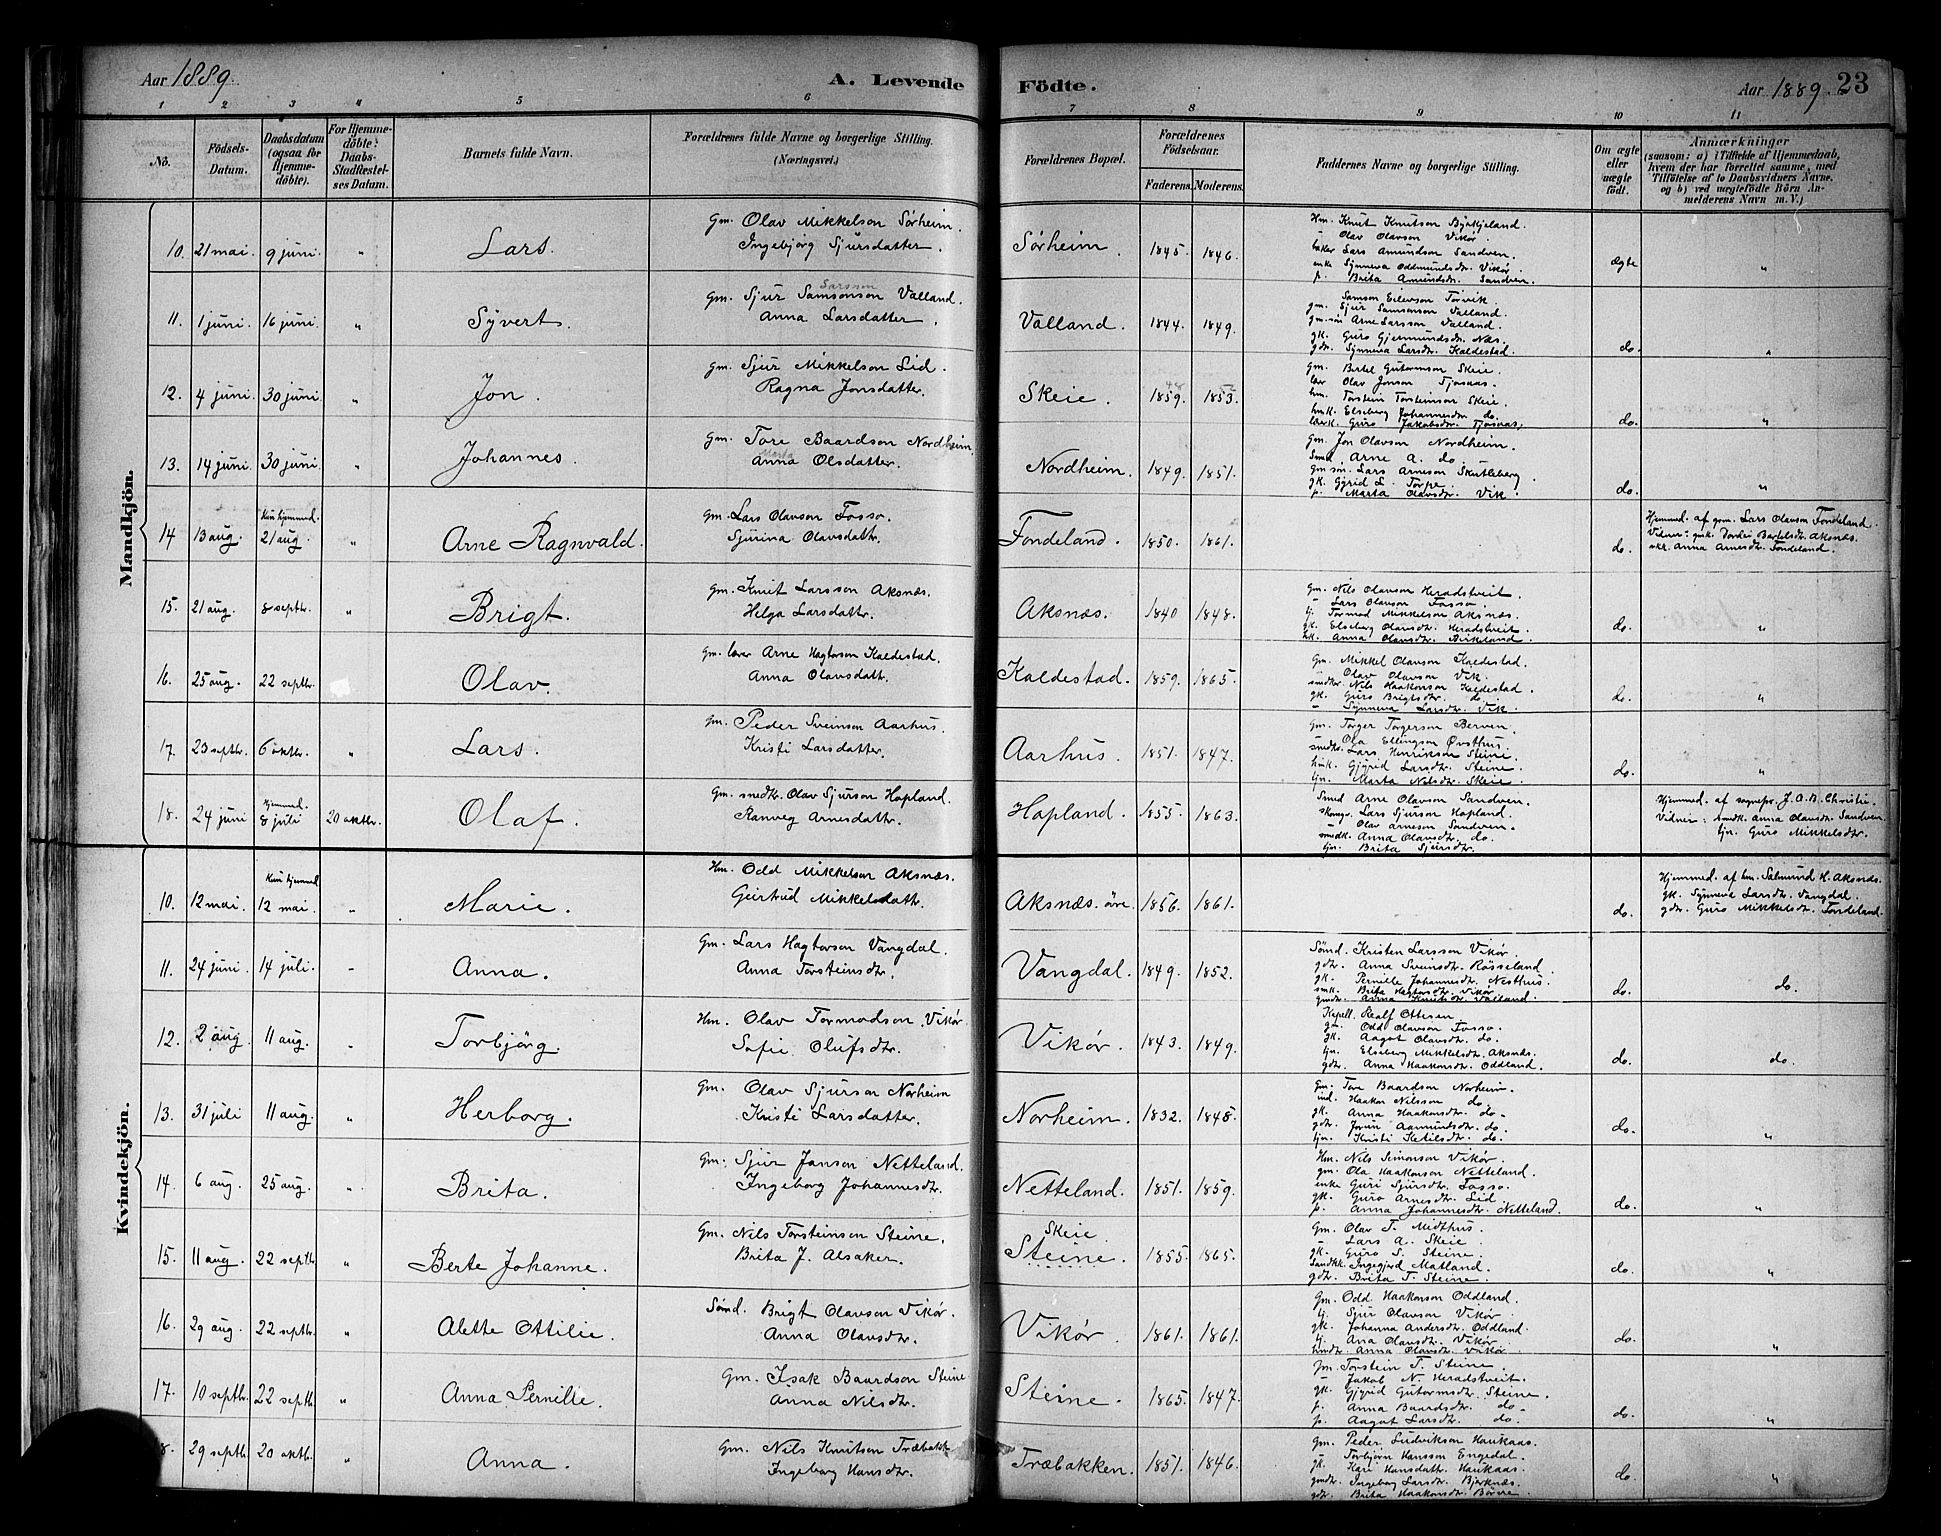 Aar 1889.
A. Levende Födte.
Aar 1889. 23
1 2 3 4 5 6 7 8 9 10 11
No.
Födsels-Datum.
Daabsdatum (ogsaa for Hjemmedöbte).
For Hjemmedöbte: Daabs-Stadfæstelses Datum.
Barnets fulde Navn.
Forældrenes fulde Navne og borgerlige Stilling. (Næringsvei.)
Forældrenes Bopæl.
Forældrenes Födselsaar.
Faderens. Moderens.
Faddernes Navne og borgerlige Stilling.
Om ægte eller uægte födt.
Anmærkninger
(saasom: a) i Tilfælde af Hjemmedaab, hvem der har forrettet samme, med Tilföielse af to Daabsvidners Navne, og b) ved uægtefödte Börn Anmelderens Navn m. V.)
Mandkjön.
10. 21 mai. 9 juni. " Lars.
Gm. Olav Mikkelson Sørheim.
Ingebjörg Sjursdatter.
Sørheim. 1845. 1846.
Hm. Knut Knutson Byrkjeland.
– Olav Olavson Vikør.
Lars Amundson Sandven.
enke Synneva Oddmundsdr. Vikør.
p. Brita Amundsdr. Sandven.
ægte "
11. 1 juni. 16 juni. " Syvert.
Larsson
Gm. Sjur Samsonson Valland.
Anna Larsdatter.
Valland. 1844. 1849.
Samson Eilevson Torvik.
gm. Sjur Samsonson Valland.
gm.sön Arne Larsson Valland.
gk. Guro Gjermundsdr. Næs.
gdr. Synneva Larsdr. Kaldestad.
do. "
12. 4 juni. 30 juni. " Jon.
Gm. Sjur Mikkelson Lid.
Ragna Jonsdatter.
Skeie. 1859. 1853.
gm. Botel Gutormson Skeie.
lær Olav Jonson Tjosaas.
hm. Torstein Torsteinson Skeie.
hmk. Elseberg Johannesdr. do.
lærk. Guro Jakobsdr. Tjosaas.
do. "
13. 14 juni. 30 juni. " Johannes.
Gm. Tore Baardson Nordheim
Marta
Anna Olsdatter.
Nordheim. 1849. 1851.
Gm. Jon Olavson Nordheim.
Smed Arne A. do.
gm.sön. Lars Arneson Skutleberg.
gk. Gyrid L. Torpe.
p. Marta Olavsdr. Vik.
do. "
14 13 aug. Kun hjemmed. 21 aug. " Arne Ragnvald.
Gm. Lars Olavson Fosso.
Sjurina Olavsdatr.
Fondeland. 1850. 1861.
do.
Hjemmed. af gm. Lars Olavson Fondeland.
Vidner: gmk. Dordei Bartelsdr. Aksnæs.
Anna Arnesdr. Fondeland.
15. 21 aug. 8 septbr. " Brigt.
Gm. Knut Larsson Aksnæs.
Helga Larsdatr.
Aksnæs. 1840 1848.
Gm. Nils Olavson Heradstveit.
– Lars Olavson Fosso.
tj. Tormod Mikkelson Aksnæs.
gk. Elseberg Olavsdr. Heradstveit.
hk. Anna Olavsdr. Birkeland.
do. "
16. 25 aug. 22 septbr. Olav.
Gm. lærer Arne Hagtorson Kaldestad.
Anna Olavsdatr.
Kaldestad. 1859. 1865.
Gm. Mikkel Olavson Kaldestad.
Olav Olavson Vik.
smedkr. Nils Haakonson Kaldestad.
gk. Guro Brigtsdr. do.
– Synneva Larsdr. Vik.
do. "
17. 23 septbr. 6 oktbr. " Lars.
Gm. Peder Sveinson Aarhus.
Kristi Larsdatter.
Aarhus. 1851. 1847.
Gm. Torger Torgerson Berven.
Ola Ellingson Øvsthus.
smedkr. Lars Henrikson Steine.
hmk. Gjyrid Larsdr. Steine.
tjn. Marta Nilsdr. Skeie.
do. "
18. 24 juni Hjemmed. 8 juli 20 oktbr. Olaf.
Gm. smedkr. Olav Sjurson Hopland.
Ranveg Arnesdatr.
Hopland. 1855. 1863.
Smed Arne Olavson Sandven.
Lars Sjurson Hopland.
Olav Arneson Sandven.
smedk. Anna Olavsdr. do.
tjn. Brita Sjursdr.
Hjemmed. af sognepr. J. O. B. Christie.
Vidner: smedk. Anna Olavsdr. Sandven.
tjn. Guro Mikkelsdr.
Kvindekjön.
10. 12 mai. Kun hjemmed. 12 mai. " Marie.
Hm. Odd Mikkelson Aksnæs.
Geirtrud Mikkelsdatr.
Aksnæs. øvre. 1856. 1861.
do.
Hjemmed. af hm. Salmund H. Aksnæs.
gk. Synneva Larsdr. Vangdal.
gdr. Guro Mikkelsdr. Fondeland.
11. 24 juni. 14 juli. – Anna.
Gm. Lars Hagtorson Vangdal.
Anna Torsteinsdtr.
Vangdal. 1849. 1852.
Sönd. Kristen Larsson Vikør.
gdr. Anna Sveinsdr. Røsseland.
gk. Pernille Johannesdr. Nesthus.
smk. Brita Hagtorsdr. Vikør
gmdr. Anna Knutsdr. Valland.
do. do.
12. 2 aug. 11 aug. – Torbjörg.
Hm. Olav Tormodson Vikør.
Sofie Olufsdtr.
Vikør. 1843. 1849.
Kapell. Realf Ottesen.
gm. Odd Olavson Fosso.
gk. Aagot Olavsdr. do.
tjn. Elseberg Mikkelsdr. Aksnæs.
gdr. Anna Haakonsdr. Oddland.
do. do.
13. 31 juli 11 aug. " Herborg.
Gm. Olav Sjurson Norheim
Kristi Larsdatter.
Norheim. 1832. 1848.
Gm. Tore Baardson Norheim.
ind. Haakon Nilsson do.
gk. Anna Haakonsdr. do.
gdr. Jorun Aamundsdr. do.
tjn. Kristi Ketilsdr. do.
do. "
14. 6 aug. 25 aug. " Brita.
Gm. Sjur Janson Netteland.
Ingeborg Johannesdtr.
Netteland. 1851. 1859.
Hm. Nils Simonson Vikør.
gm. Ola Haakonson Netteland.
enke Guri Sjursdr. Fosso.
gk. Guro Arnesdtr. Lid.
p. Anna Johannesdtr. Netteland.
do. "
15. 11 aug. 22 septbr. " Berte Johanne.
Gm. Nils Torsteinson Steine.
Brita J. Alsaker.
Skeie
Steine. 1855. 1865.
Gm. Olav T. Midthus.
– Lars A. Skeie.
gk. Guro S. Steine.
Ingegjerd Matland.
gdr. Brita T. Steine.
do. "
16. 29 aug. 22 septbr. " Alette Ottilie.
Sønd. Brigt Olavson Vikør.
Anna Olavsdtr.
Vikør. 1861. 1861.
Gm. Odd Haakonson Oddland.
tj. Sjur Olavson Vikør.
gk. Johanna Andersdr. Oddland.
tj. Ana Olavsdtr. Vikør.
Anna Olavsdtr. Vikør
do. "
17. 10 septbr. 22 septbr. " Anna Pernille.
Gm. Isak Baardson Steine
Anna Nilsdtr.
Steine. 1865. 1847.
Gm. Torstein T. Steine.
– Jakob N. Heradstveit.
gk. Gjyrid Gutormsdtr. Steine.
p. Anna Baardsdtr. do.
p. Aagot Larsdtr. do.
do. "
8. 29 septbr. 20 oktbr. " Anna.
Gm. Nils Knutson Træbakk
Ingeborg Hansdtr.
Træbakken. 1851. 1846.
Gm. Peder Ludvikson Haukaas.
Torbjörn Hansson Engedal.
gk. Kari Hansdatr. Haukaas.
gmdr. Ingeborg Larsdtr. Bjerknæs.
gdr. Brita Haakonsdtr. Børve.
do. "